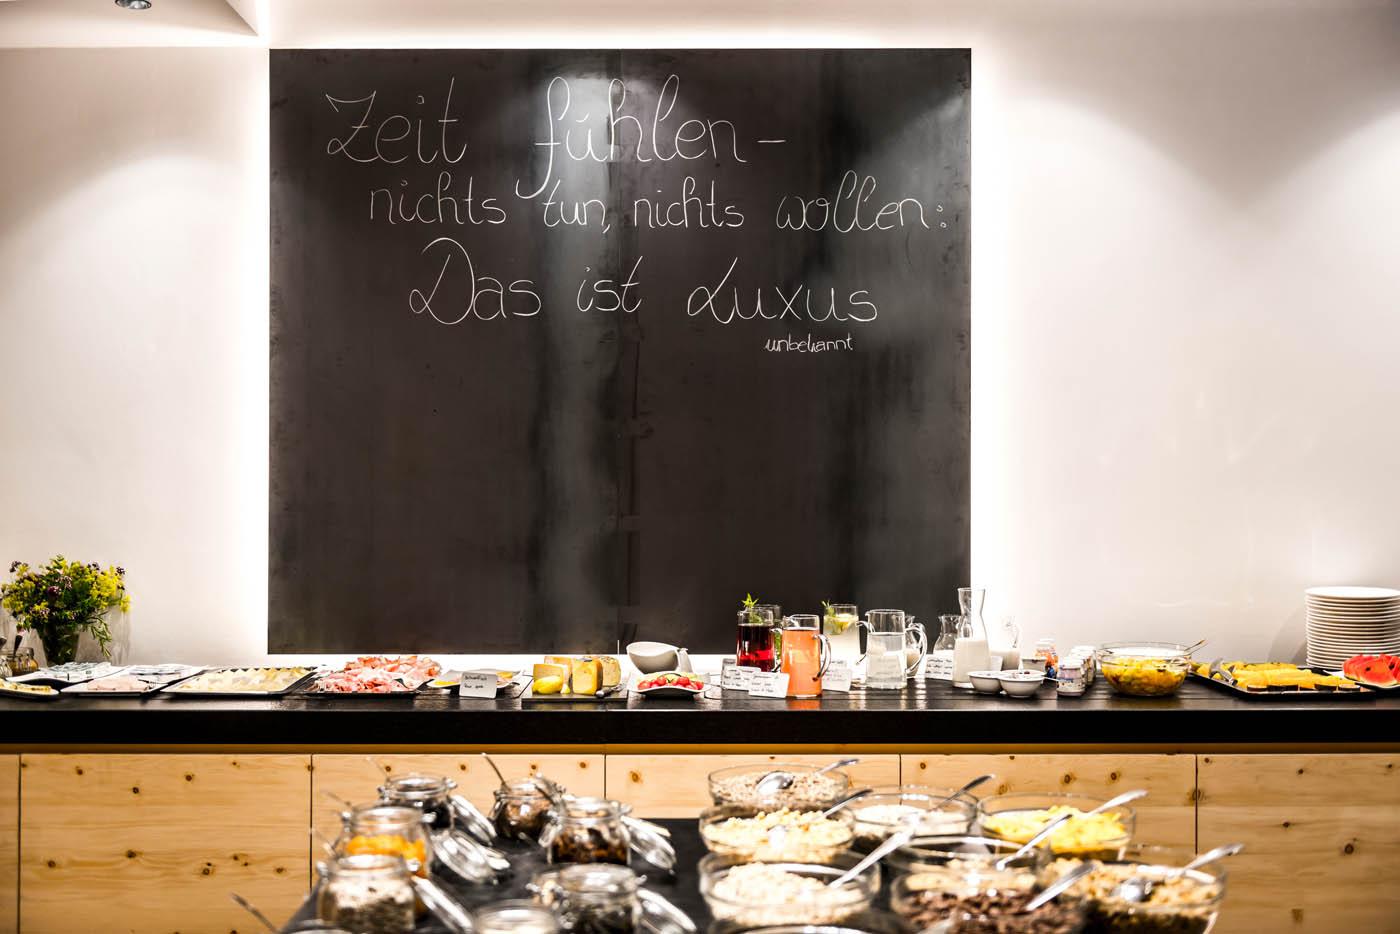 Zeit fühlen –
nichts tun, nichts wollen:
Das ist Luxus
unbekannt